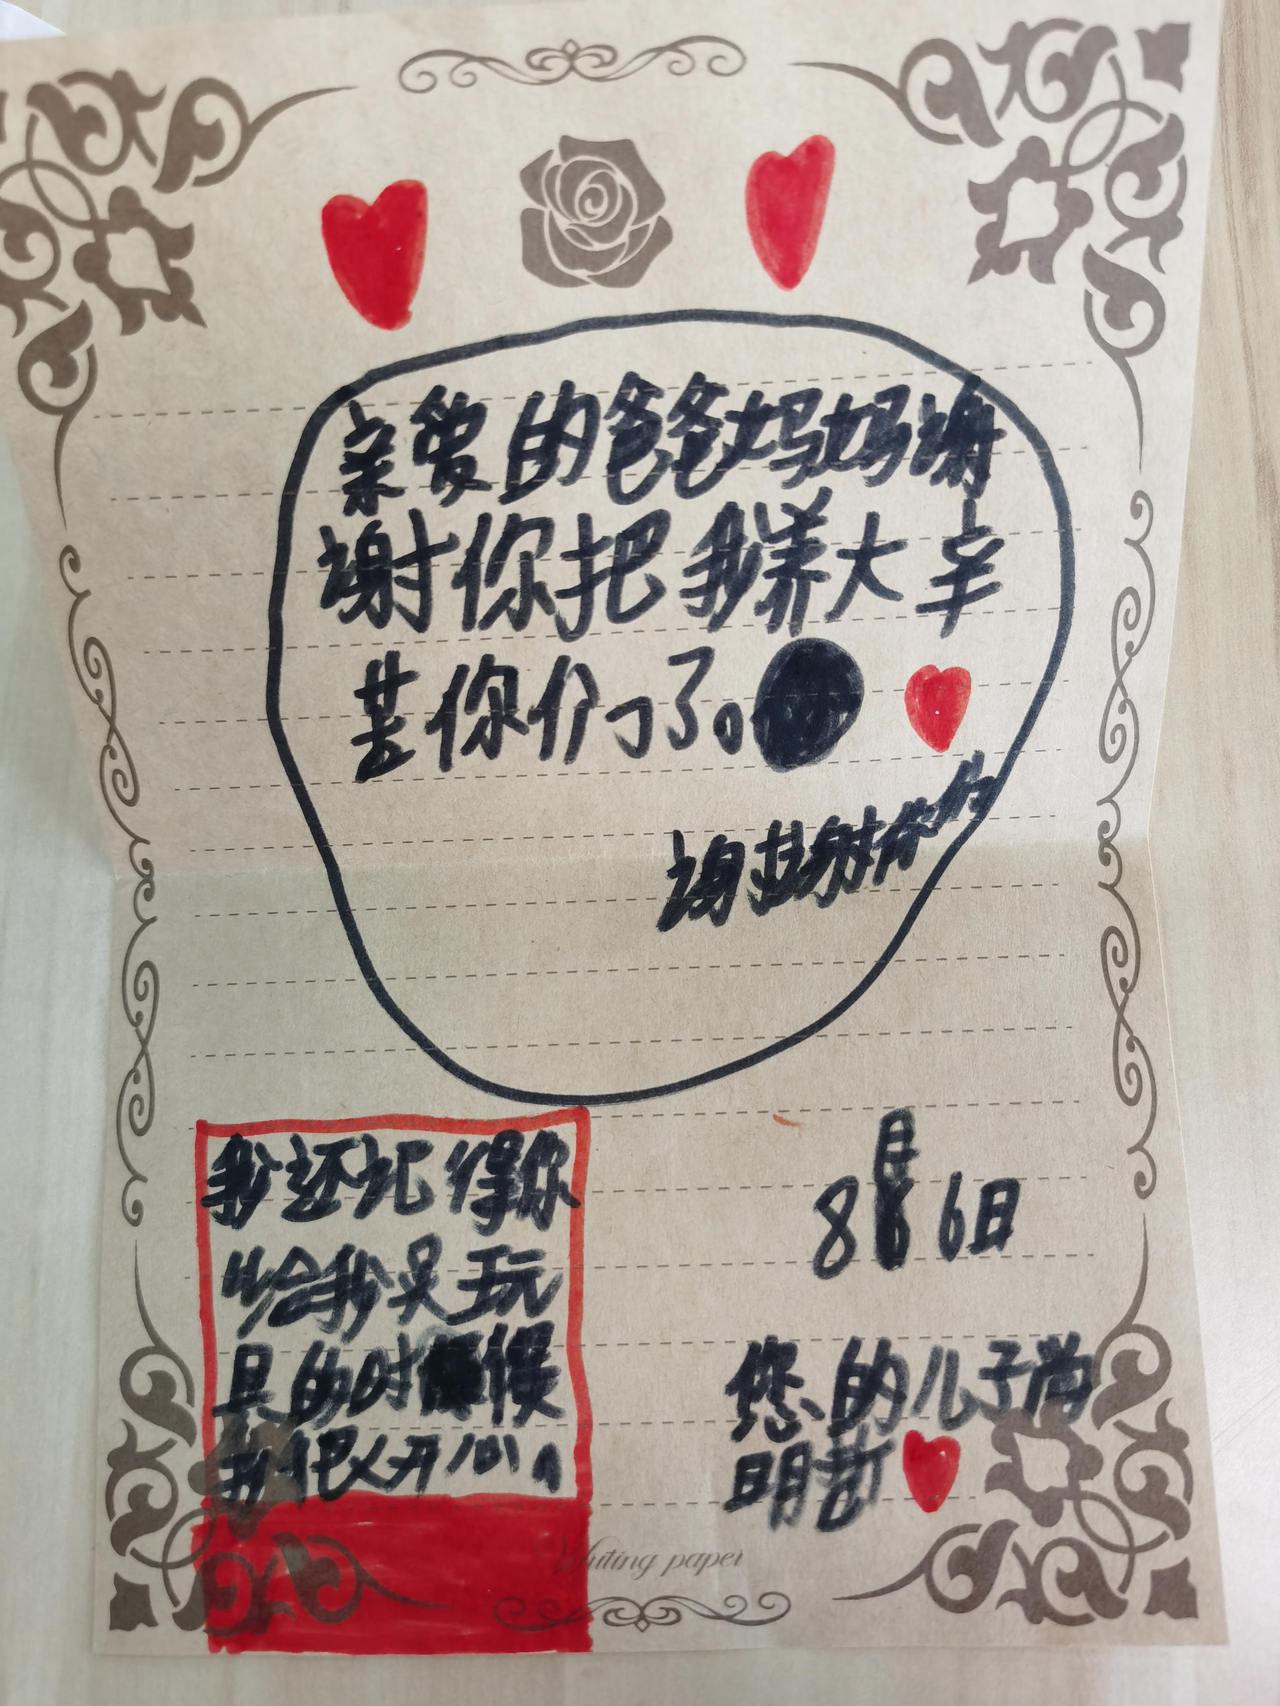 亲爱的爸爸妈妈谢
谢你把我养大辛
苦你们了。
谢谢你们
我还记得你
给我买玩
具的时候
我很开心。
8月6日
您的儿子尚
明哲
Writing paper